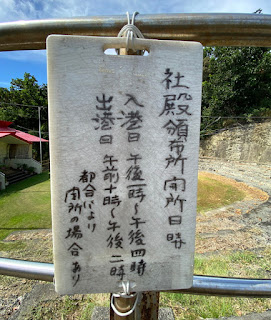 社殿頒布所 開所日時
入港日 午後一時〜午後四時
出港日 午前十時〜午後二時
都合により
閉所の場合あり